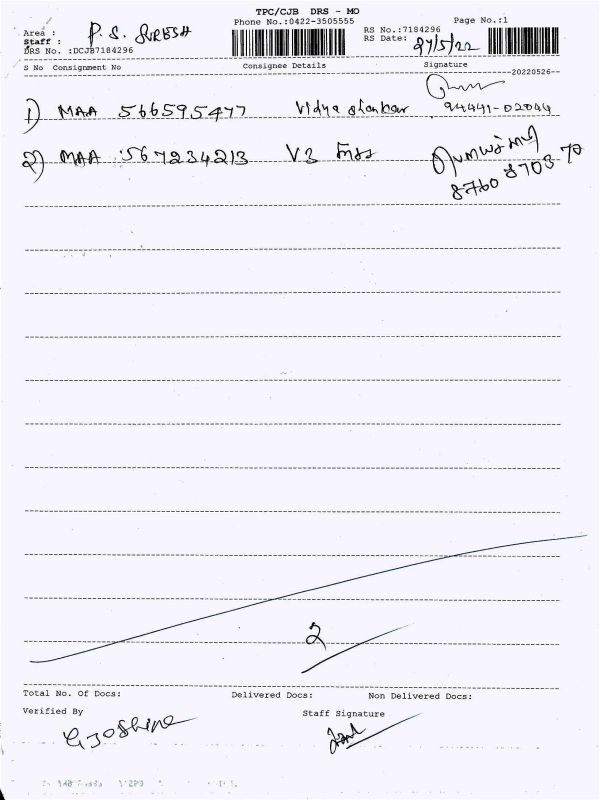 TPC/CJB DRS - MO
Phone No.:0422-3505555
Page No.:1
Area :
Staff : P. S. SURESH
DRS No. :DCJB7184296
RS No.:7184296
RS Date: 27/5/22
S No Consignment No Consignee Details Signature
20220526
1) MAA 566595477 Vidya shankar 94441-02044
2) MAA 567234213 V3
8760 8703 70
2
Total No. Of Docs: Delivered Docs: Non Delivered Docs:
Verified By Staff Signature